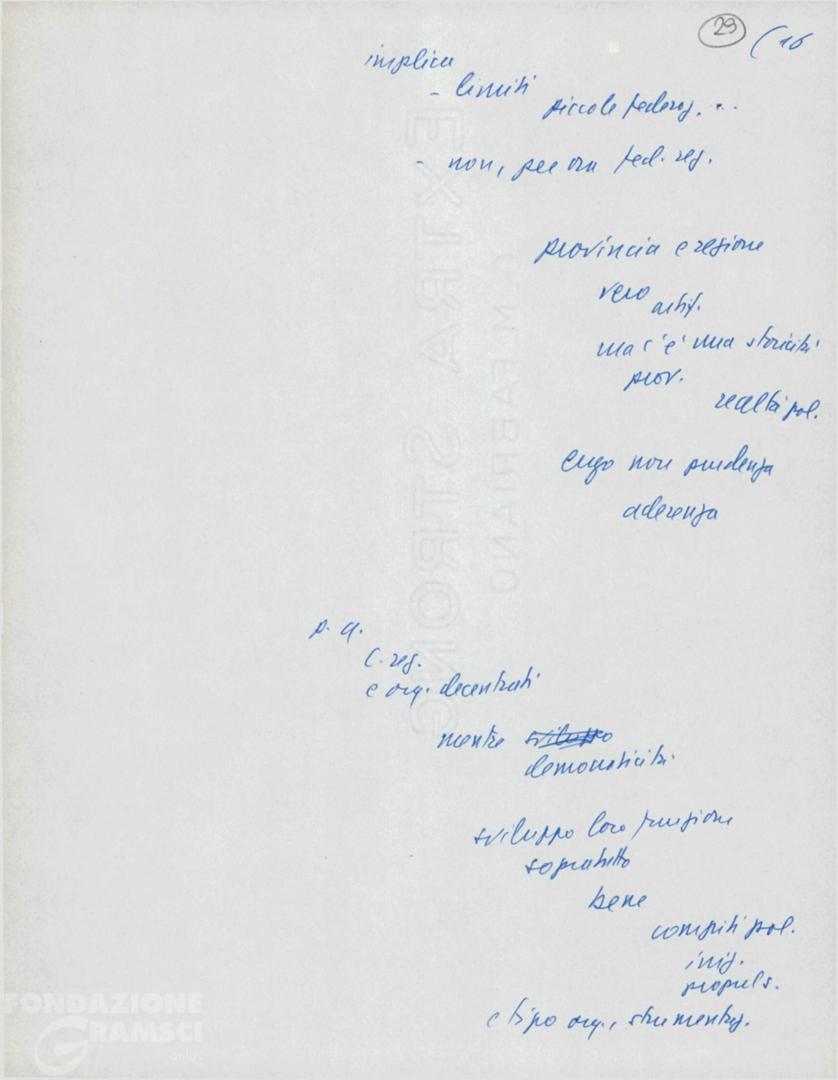 29 (16
implica
- limiti
piccole federaz. ...
- non, per ora fed. reg.
provincia e regione
vero
artif.
ma c'è una storicità
prov.
realtà pol.
ergo non prudenza
aderenza
p. q.
C. reg.
e org. decentrati
mentre sviluppo
democraticità
sviluppo loro funzione
sopratutto
bene
compiti pol.
iniz.
propuls.
e tipo org., strumentaz.
EXTRA STRONG
C.M.FABRIANO
FONDAZIONE
GRAMSCI
onlus